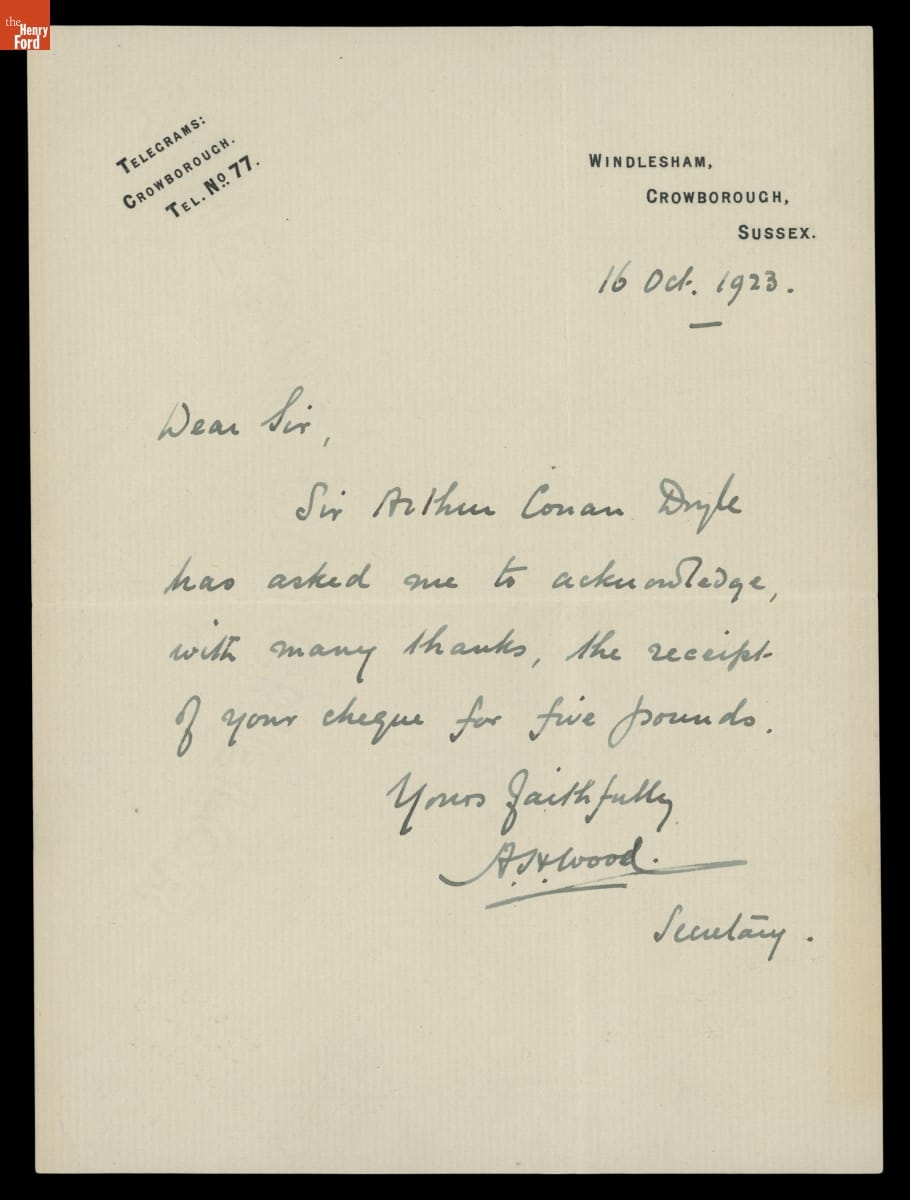 the
Henry
Ford
TELEGRAMS:
CROWBOROUGH.
TEL. No. 77.
WINDLESHAM,
CROWBOROUGH,
SUSSEX.
16 Oct. 1923.
Dear Sir,
Sir Arthur Conan Doyle
has asked me to acknowledge,
with many thanks, the receipt
of your cheque for five pounds.
Yours faithfully
A.H. Wood.
Secretary.